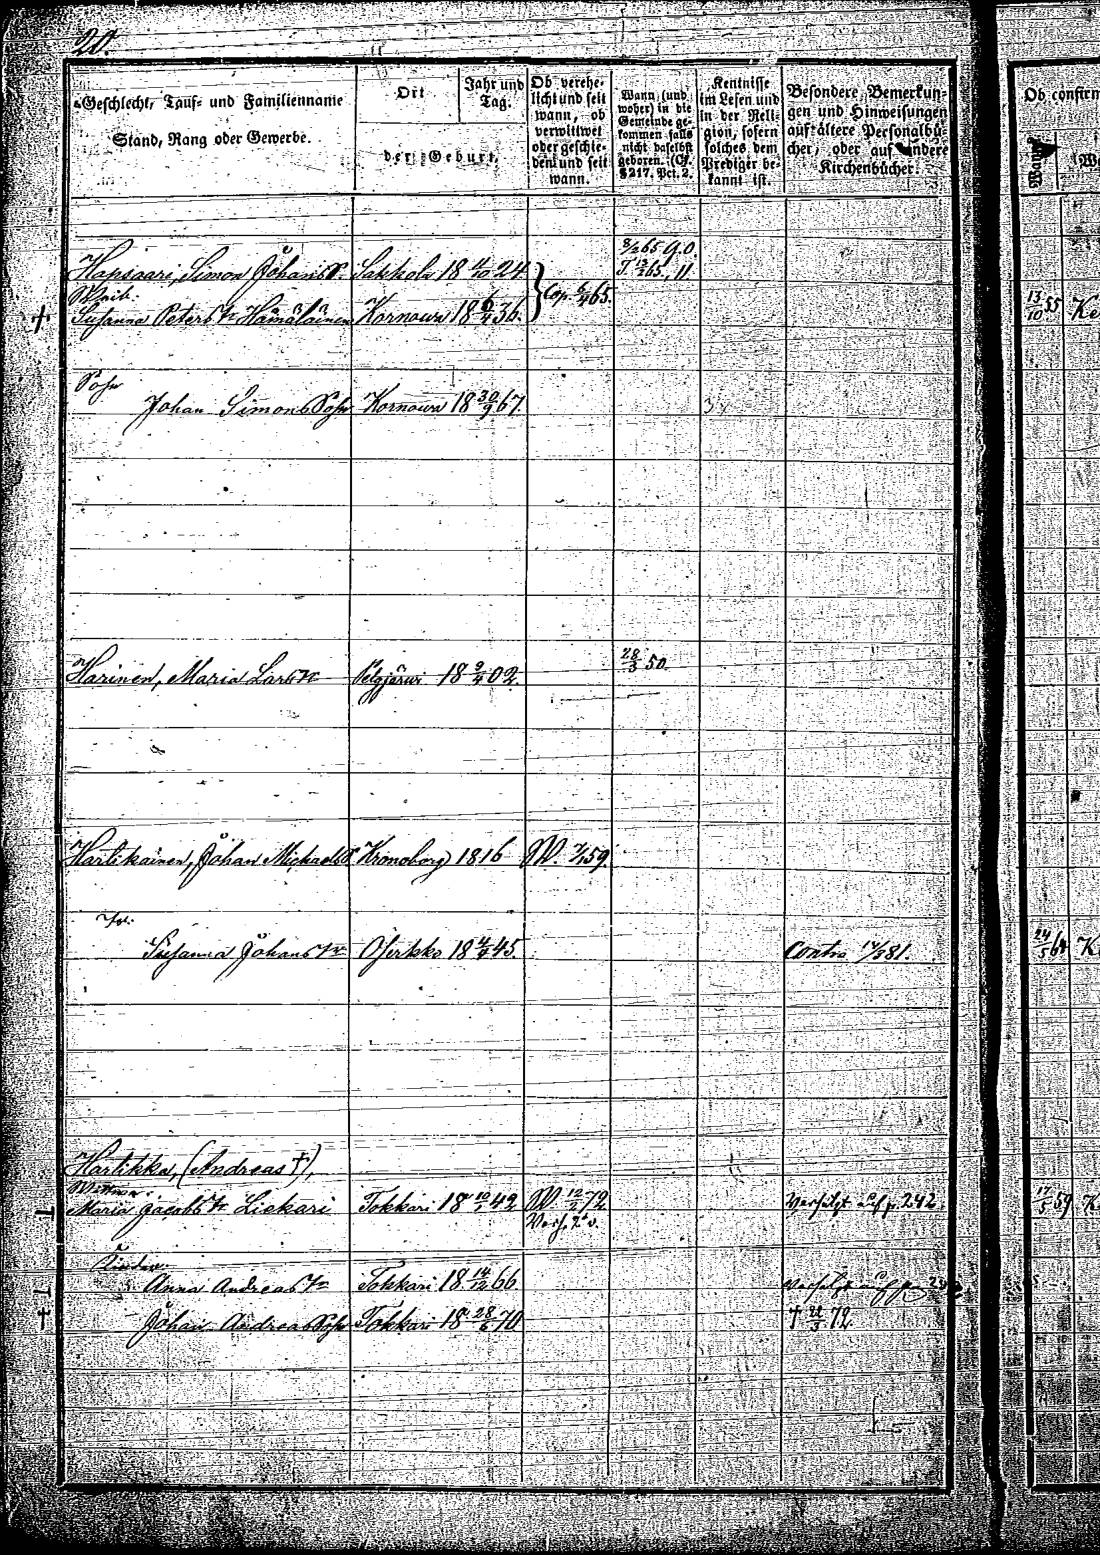 20.
Geschlecht, Tauf- und Familienname
Stand, Rang oder Gewerbe.
Ort
Jahr und
Tag.
der Geburt.
Ob verehe-
licht und seit
wann, ob
verwittwet
oder geschie-
den und seit
wann.
Wann (und
woher) in die
Gemeinde ge-
kommen falls
nicht daselbst
geboren. (Cf.
§ 217. Pct. 2.
Kentnisse
im Lesen und
in der Reli-
gion, sofern
solches dem
Prediger be-
kannt ist.
Besondere Bemerkun-
gen und Hinweisungen
auf ältere Personalbü-
cher, oder auf andere
Kirchenbücher.
Ob confirm
Wann
8/2 65 90.
Hapsaari, Simon Johans S. Sakkola 18 4/10 24 T. 12/2 65, 11
Weib.
+ Susanna Peters Tr. Hämäläinen Kornowa 18 6/4 36. Cop. 6/4 65. 13/10 55
Sohn
Johan Simons Sohn Kornowa 18 30/9 67.
28/3 50.
Harinen, Maria Lars Tr Pelgjärwi 18 2/4 02.
Hartikainen, Johan Michaels S. Kronoborg 1816 W. 7/4 59.
Susanna Johans Tr. 18 4/4 45. 14/3 81. 24/5 64
Hartikka, (Andreas †),
Wittwe.
Maria Jacobs Tr. Liekari Tokkari 18 10/1 42 W. 12/2 72 Verh. Versetzt auf p. 242. 17/5 59
Kinder.
Anna Andreas Tr Tokkari 18 14/12 66 Versetzt
† Johan Andreas Sohn Tokkari 18 28/6 70 † 21/3 72